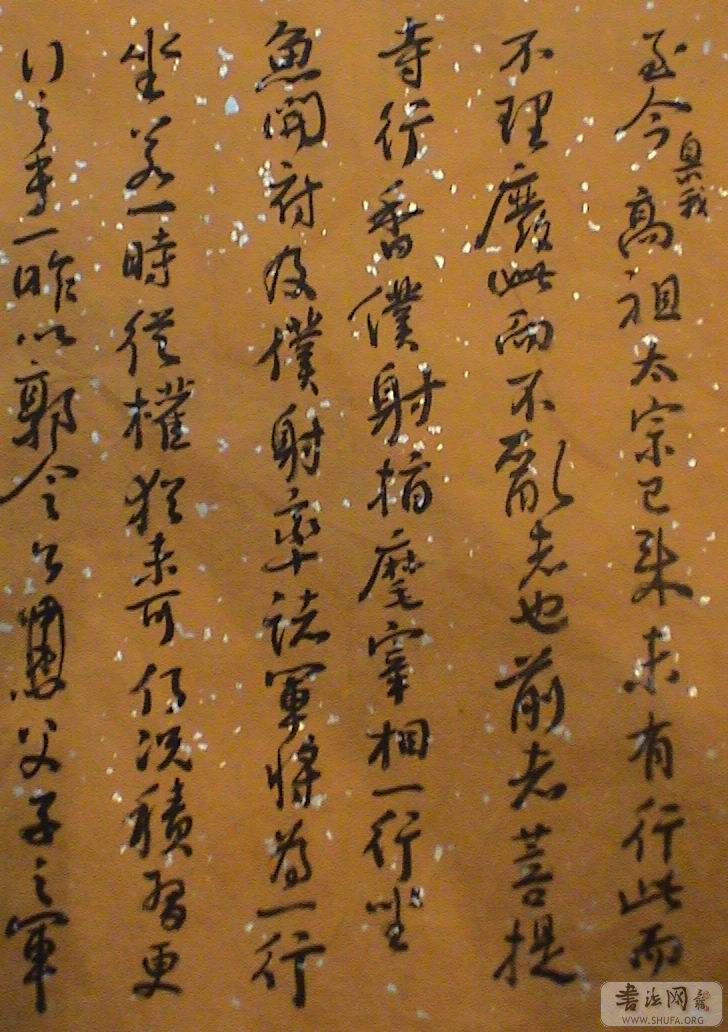 至今臮我高祖太宗已來未有行此而
不理廢此而不亂者也前者菩提
寺行香僕射指麾宰相一行坐
魚開府及僕射率諸軍將為一行
坐若一時從權猶未可何況積習更
行之一昨以郭令公父子之軍
書法网
WWW.SHUFA.ORG